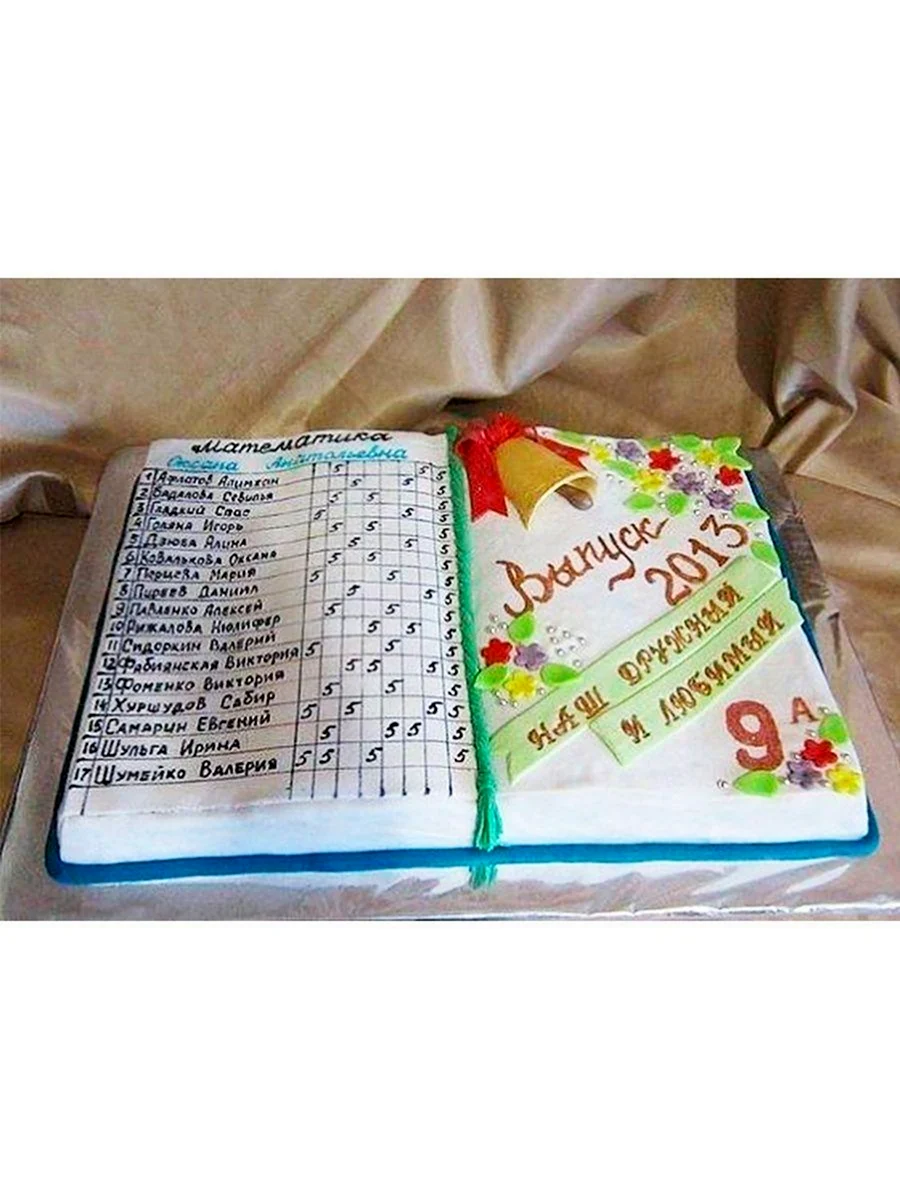 Математика
Оксана Анатольевна
1 Афлатов Алимхан 5 5 5
2 Бадалова Севилья 5 5 5
3 Гладкий Спас 5 5 5
4 Голяна Игорь 5 5 5
5 Дзюба Алина 5 5 5
6 Ковалькова Оксана 5 5 5
7 Перцева Мария 5 5 5
8 Пиреев Даниил 5 5 5
9 Павленко Алексей 5 5 5
10 Рыжалова Нюлифер 5 5 5
11 Сидоркин Валерий 5 5 5
12 Фабиянская Виктория 5 5 5
13 Фоменко Виктория 5 5 5
14 Хуршудов Сабир 5 5 5 5
15 Самарин Евгений 5 5 5 5
16 Шульга Ирина 5 5 5
17 Шумейко Валерия 5 5 5
Выпуск
2013
НАШ ДРУЖНЫЙ
И ЛЮБИМЫЙ
9 А